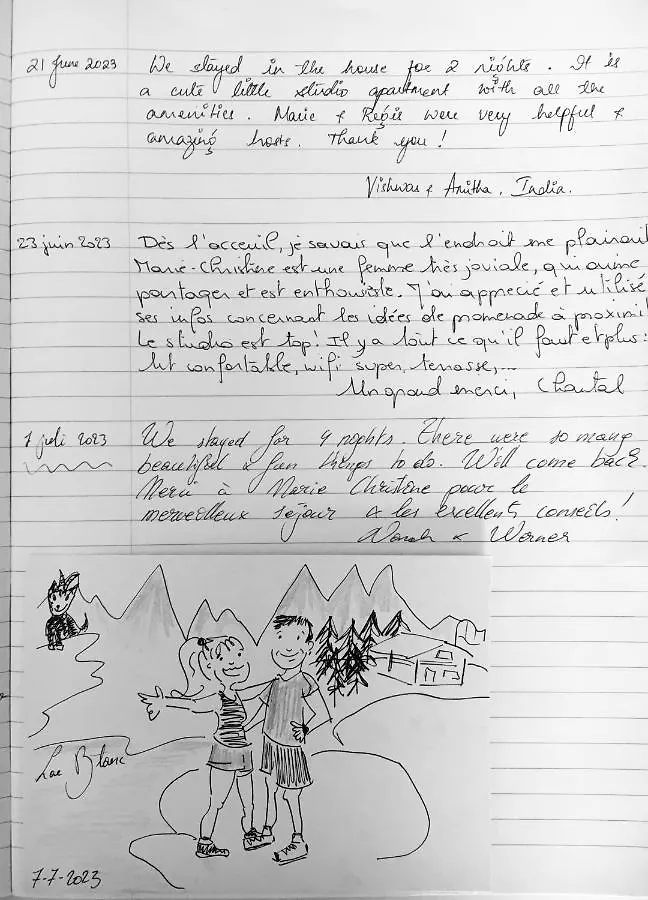 21 June 2023 We stayed in the house for 2 nights. It is
a cute little studio apartment with all the
amenities. Marie & Regis were very helpful &
amazing hosts. Thank you!
Vishwas & Anitha, India.
23 juin 2023 Dès l'acceuil, je savais que l'endroit me plairait
Marie-Christine est une femme très joviale, qui aime
partager et est enthousiste. J'ai apprecié et utilisé
ses infos concernant les idées de promenade à proximi
Le studio est top! Il y a tout ce qu'il faut et plus:
lit confortable, wifi super, terrasse,...
Un grand merci, Chantal
7 juli 2023 We stayed for 4 nights. There were so many
beautiful & fun things to do. Will come back.
Merci à Marie Christine pour le
merveilleux séjour & les excellents conseils!
& Werner
Lac Blanc
7-7-2023